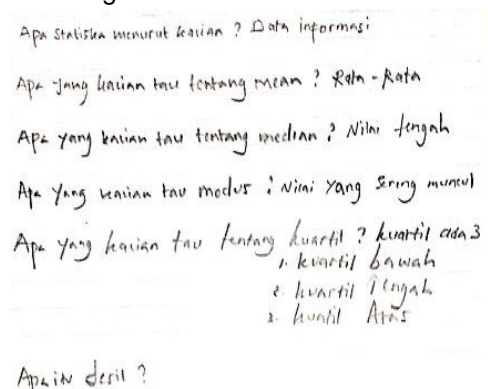 Apa Statiska menurut kalian ? Data informasi
Apa yang kalian tau tentang mean ? Rata - Rata
Apa yang kalian tau tentang median ? Nilai tengah
Apa yang kalian tau modus : Nilai yang sering muncul
Apa yang kalian tau tentang kuartil ? kuartil ada 3
1. kuartil bawah
2. kuartil Tengah
3. kuartil Atas
Apa itu desil ?